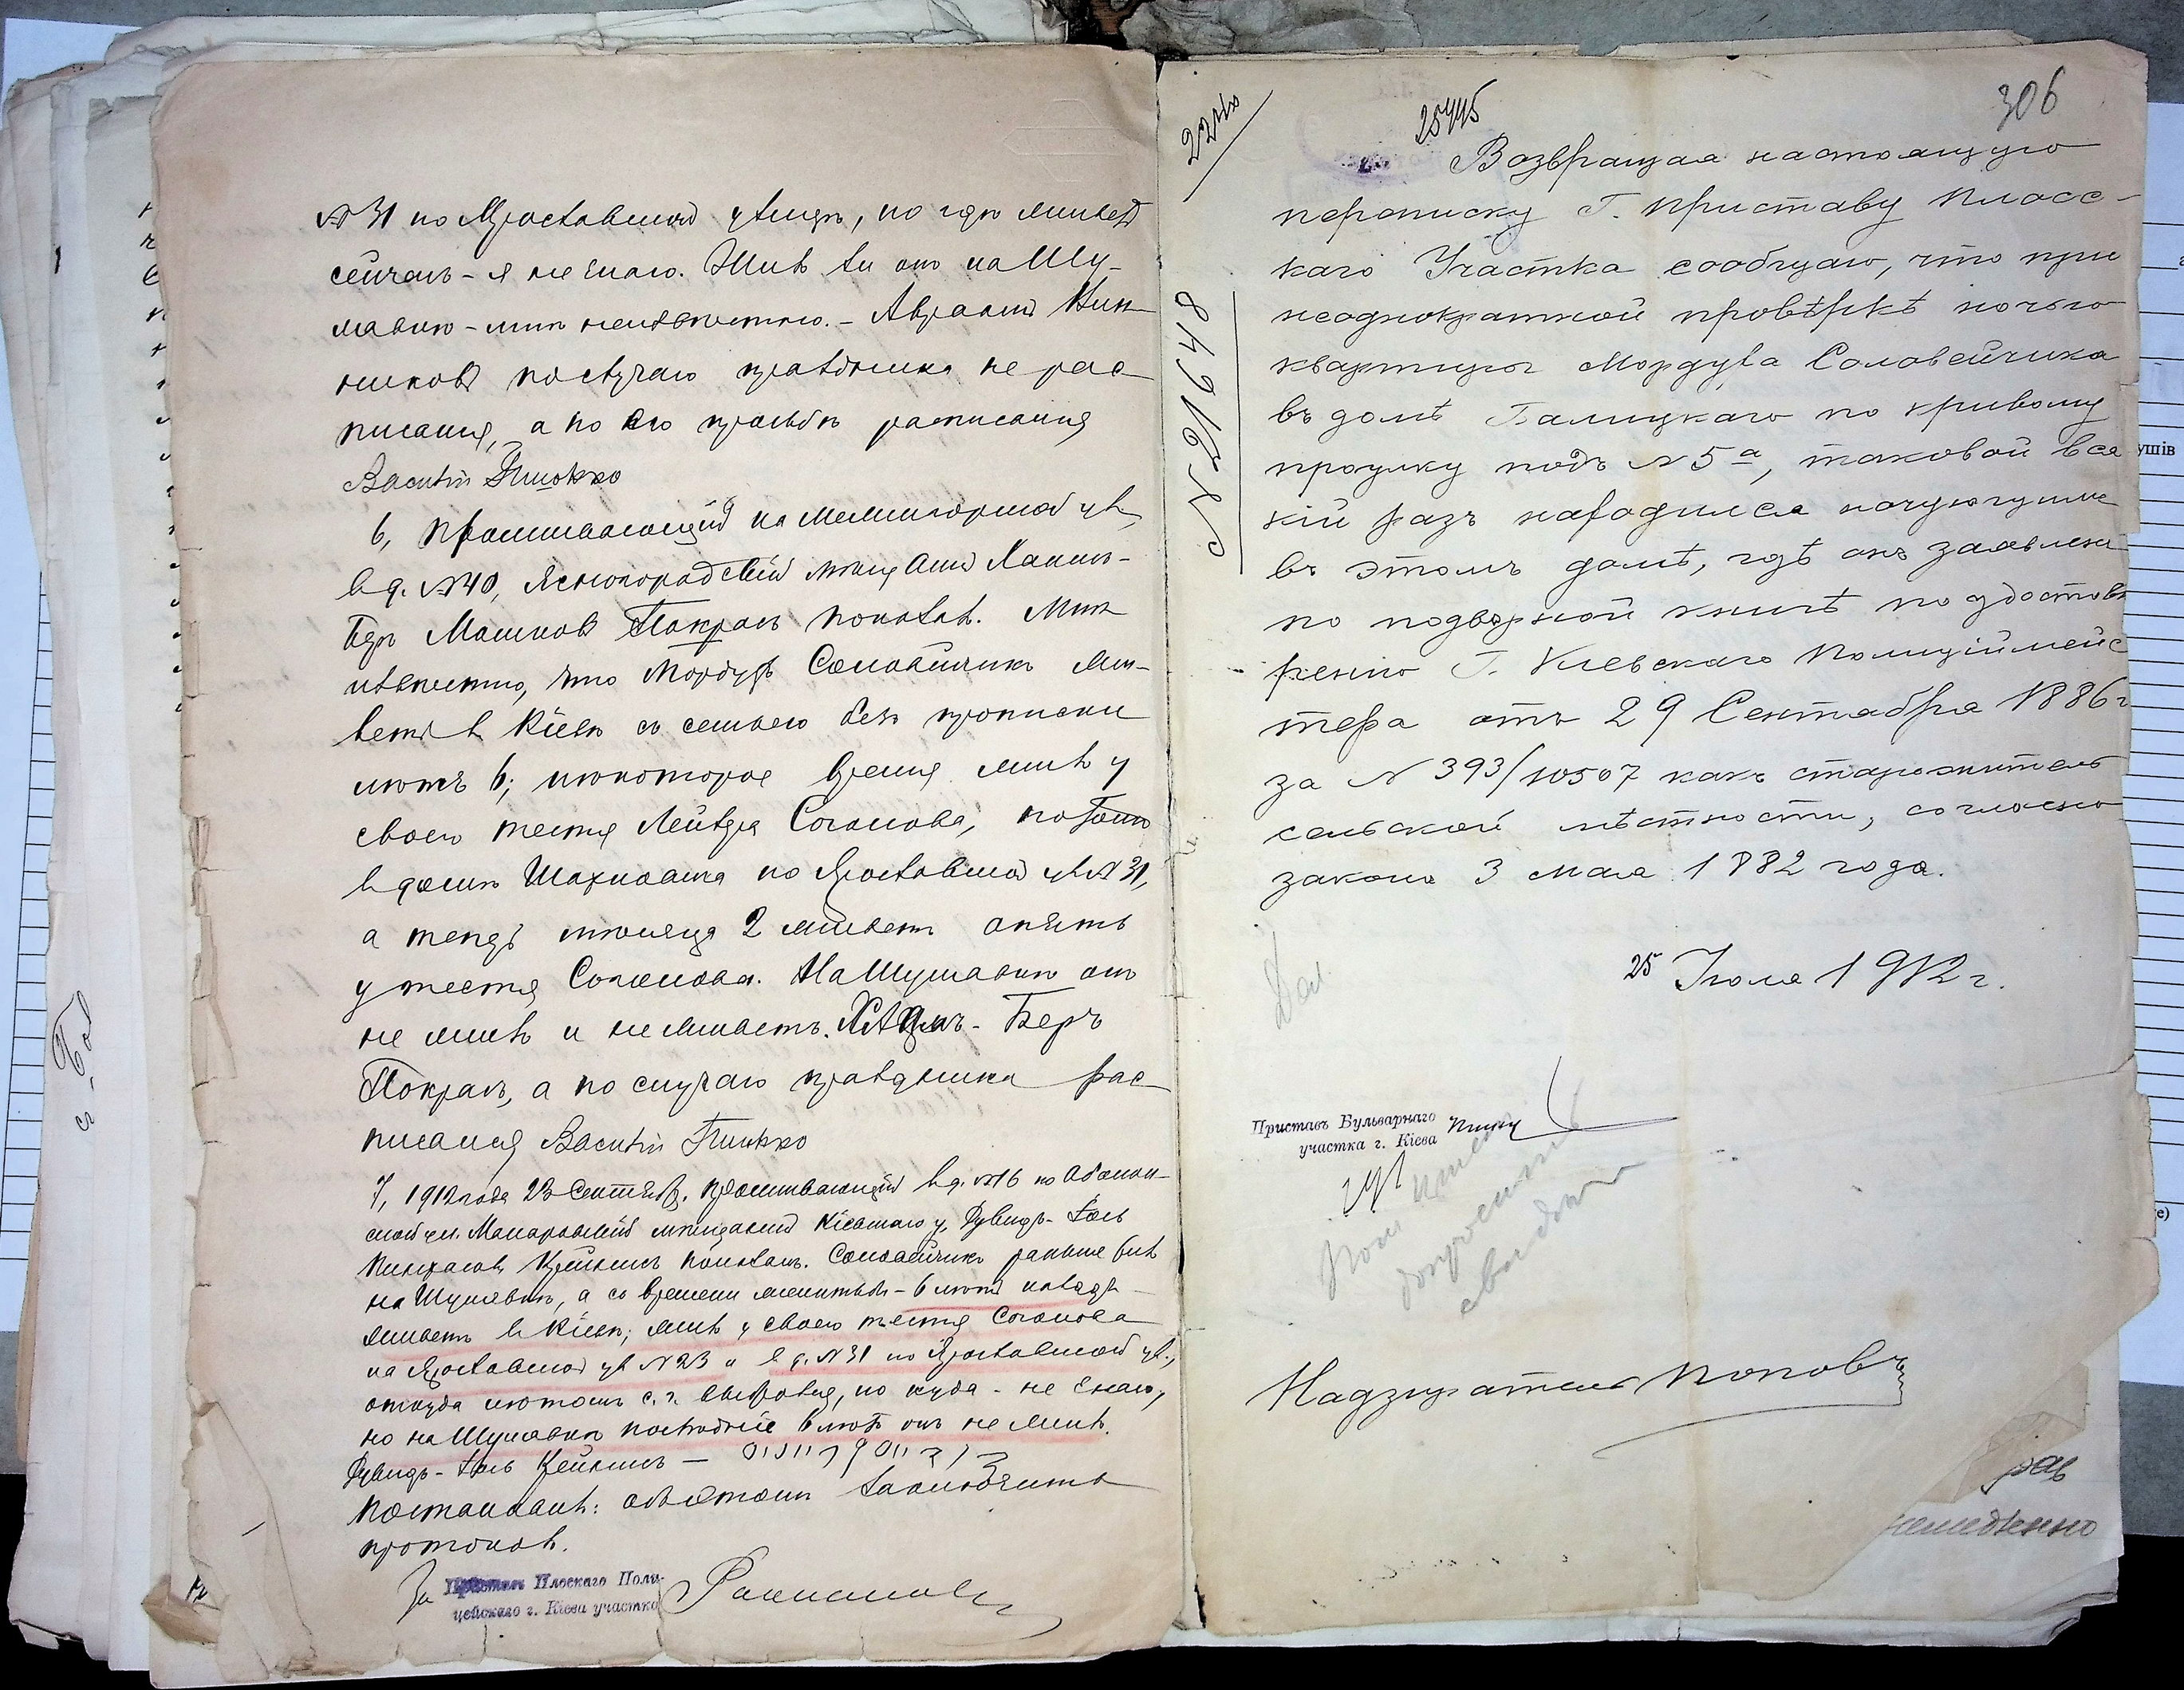 № 31 по Ярославской улицѣ, но гдѣ живетъ
сейчасъ - я не знаю. Жилъ ли онъ на Шу-
лявкѣ - мнѣ неизвѣстно. - Авраамъ
по случаю праздника не рас
писался, а по его просьбѣ расписался
Василій
6, Проживающій на Межигорской ул.
въ д. № 40, Ясногородскій мѣщанинъ Хаимъ-
Беръ Мошковъ Покрасъ показалъ. Мнѣ
извѣстно, что Мордухъ Соловейчикъ жи-
ветъ въ Кіевѣ съ семьею безъ прописки
лѣтъ 6; нѣкоторое время жилъ у
своего тестя Лейзера Согалова, потомъ
въ домѣ по Ярославской ул. № 31,
а теперь мѣсяца 2 живетъ опять
у тестя Согалова. На Шулявкѣ онъ
не жилъ и не живетъ. Хаимъ-Беръ
Покрасъ, а по случаю праздника рас
писался Василій
7, 1912 года 23 Сентяб. проживающій въ д. № 16 по Оболон-
ской ул. Макаровскій мѣщанинъ Кіевскаго у. Дувидъ-
Пинхасовъ показалъ. Соловейчикъ раньше былъ
на Шулявкѣ, а со времени женитьбы - 6 лѣтъ назадъ
живетъ въ Кіевѣ; жилъ у своего тестя Согалова
на Ярославской ул № 23 и въ д. № 31 по Ярославской ул.,
откуда лѣтомъ с. г. выбрался, но куда - не знаю,
но на Шулявкѣ послѣдніе 6 лѣтъ онъ не жилъ.
Дувидъ-
Постановилъ: объ этомъ заключить
протоколъ.
За Приставъ Плоскаго Поли-
цейскаго г. Кіева участка
306
25445
№ 21648
Возвращая настоящую
переписку Г. Приставу Плосс-
каго Участка сообщаю, что при
неоднократной провѣркѣ ночью
квартиры Мордуха Соловейчика
въ домѣ Галицкаго по кривому
проулку подъ № 5а, таковой вся
кій разъ находился ночующимъ
въ этомъ домѣ, гдѣ онъ заявленъ
по подворной книгѣ по удостовѣ
ренію Г. Кіевскаго Полиціймейс
тера отъ 29 Сентября 1886 г
за № 393/10507 какъ старожитель
сельской мѣстности, согласно
закона 3 мая 1882 года.
25 Іюля 1912 г.
Приставъ Бульварнаго
участка г. Кіева
Надзиратель Поповъ
немедленно